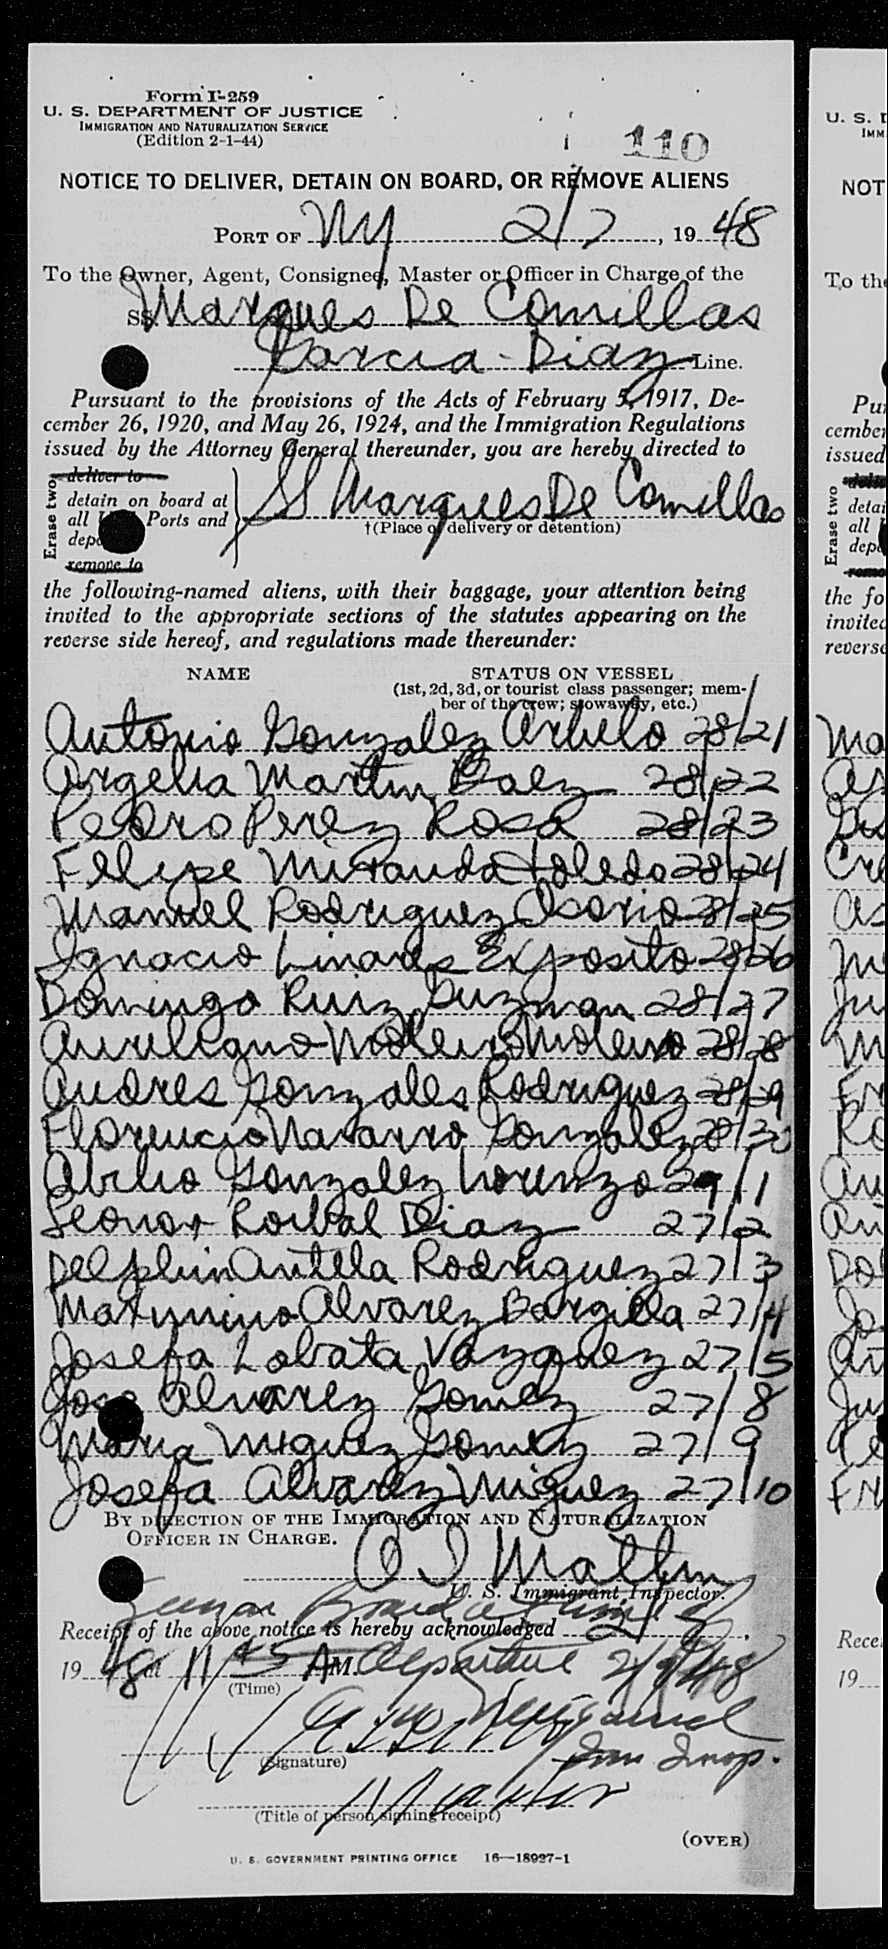 Form I-259
U. S. DEPARTMENT OF JUSTICE
IMMIGRATION AND NATURALIZATION SERVICE
(Edition 2-1-44)
110
NOTICE TO DELIVER, DETAIN ON BOARD, OR REMOVE ALIENS
PORT OF NY 2/7, 1948
To the Owner, Agent, Consignee, Master or Officer in Charge of the
SS Marques De Comillas
Garcia - Diaz Line.
Pursuant to the provisions of the Acts of February 5, 1917, De-
cember 26, 1920, and May 26, 1924, and the Immigration Regulations
issued by the Attorney General thereunder, you are hereby directed to
Erase two
deliver to
detain on board at
all Ports and
remove to
SS Marques De Comillas
†(Place of delivery or detention)
the following-named aliens, with their baggage, your attention being
invited to the appropriate sections of the statutes appearing on the
reverse side hereof, and regulations made thereunder:
NAME STATUS ON VESSEL
(1st, 2d, 3d, or tourist class passenger; mem-
ber of the crew; stowaway, etc.)
Antonio Gonzalez Arbelo 28/21
Argelia Martin Baez 28/22
Pedro Perez Rosa 28/23
Felipe Miranda Toledo 28/24
Manuel Rodriguez Osorio 28/25
Ignacio Linares Exposito 28/26
Domingo Ruiz Guzman 28/27
Aureliano Moleiro Moleiro 28/28
Andres Gonzales Rodriguez 28/29
Florencio Navarro Gonzalez 28/30
Abilio Gonzalez Lorenzo 29/1
Leonor Roibal Diaz 27/2
Delphin Antela Rodriguez 27/3
Alvarez 27/4
Josefa Lobata Vazquez 27/5
Jose Alvarez Gomez 27/8
Maria Miguez Gomez 27/9
Josefa Alvarez Miguez 27/10
BY DIRECTION OF THE IMMIGRATION AND NATURALIZATION
OFFICER IN CHARGE.
U. S. Immigrant Inspector.
Board
Receipt of the above notice is hereby acknowledged
1948 at 11 45 AM departure 2/9/48
(Time)
(Signature)
Imm Insp.
Master
(Title of person signing receipt)
(OVER)
U. S. GOVERNMENT PRINTING OFFICE 16—18927-1
U. S. D
IMM
NOT
To the
Pur
cember
issued
Erase two
detai
all
depo
the fo
invited
reverse
Rece
19